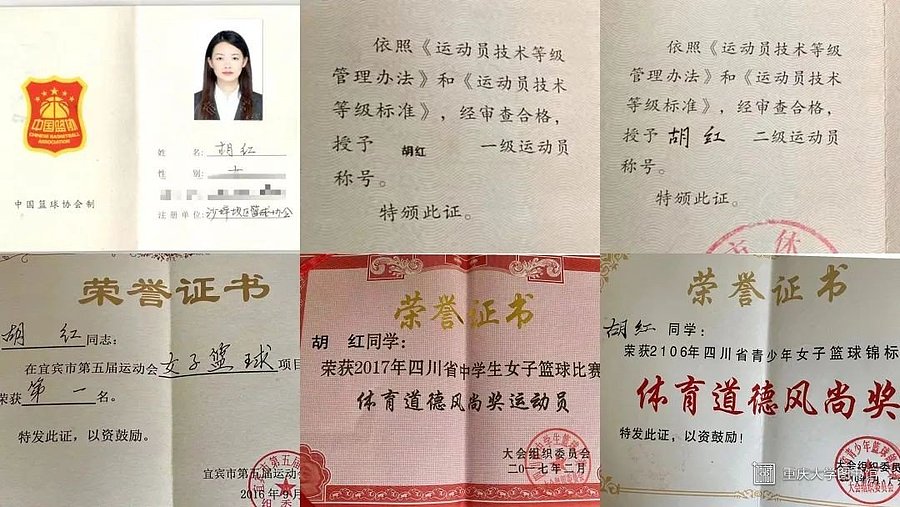 中国篮协
CHINESE BASKETBALL
ASSOCIATION
中国篮球协会制
姓 名: 胡红
性 别: 女
注册单位: 沙坪坝区篮球协会
依照《运动员技术等级
管理办法》和《运动员技术
等级标准》，经审查合格，
授予 胡红 一级运动员
称号。
特颁此证。
依照《运动员技术等级
管理办法》和《运动员技术
等级标准》，经审查合格，
授予 胡红 二级运动员
称号。
特颁此证。
荣誉证书
胡 红同志：
在宜宾市第五届运动会女子篮球项目
荣获第一名。
特发此证，以资鼓励。
宜宾市第五届运动会
2016年9月
荣誉证书
胡 红同学：
荣获2017年四川省中学生女子篮球比赛
体育道德风尚奖运动员
大会组织委员会
二〇一七年二月
荣誉证书
胡红 同学：
荣获2106年四川省青少年女子篮球锦标
体育道德风尚奖
特发此证，以资鼓励！
大会组织委员
重庆大学图书馆